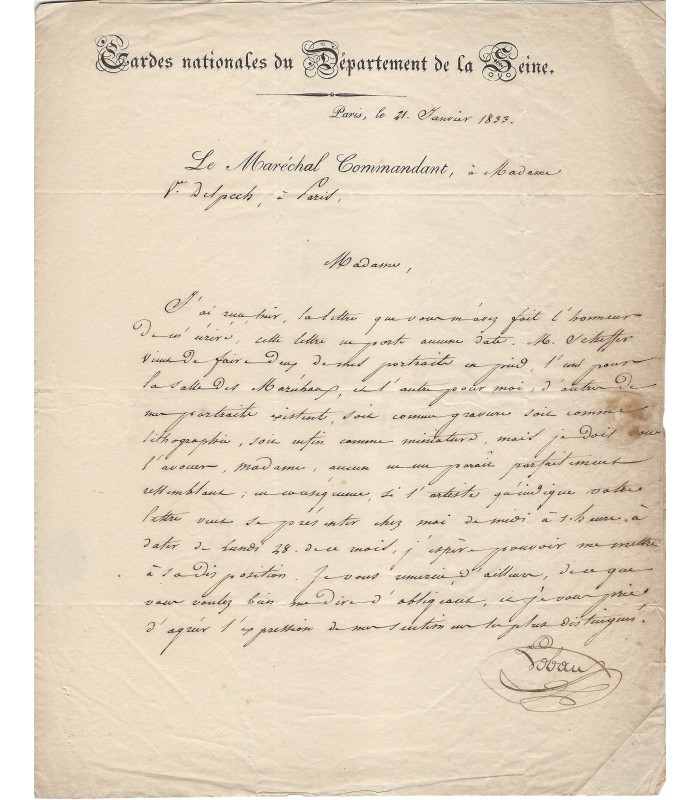 Gardes nationales du Département de la Seine.
Paris, le 21. Janvier 1833.
Le Maréchal Commandant, à Madame
Ve. Delpech, à Paris.
Madame,
J'ai reçu hier, la lettre que vous m'avez fait l'honneur
de m'écrire, cette lettre ne porte aucune date. M. Scheffer
vient de faire deux de mes portraits en pied, l'un pour
la salle des Maréchaux, et l'autre pour moi; d'autre de
me portraits existent, soit comme gravure soit comme
lithographie, soit enfin comme miniature, mais je dois vous
l'avouer, madame, aucun ne me paraît parfaitement
ressemblant; en conséquence, si l'artiste qu'indique votre
lettre veut se présenter chez moi de midi à 1 heure à
dater de Lundi 28. de ce mois, j'espère pouvoir me mettre
à sa disposition. Je vous remercie d'ailleurs, de ce que
vous voulez bien me dire d'obligeant, et je vous prie
d'agréer l'expression de mes sentimens les plus distingués.
Lobau